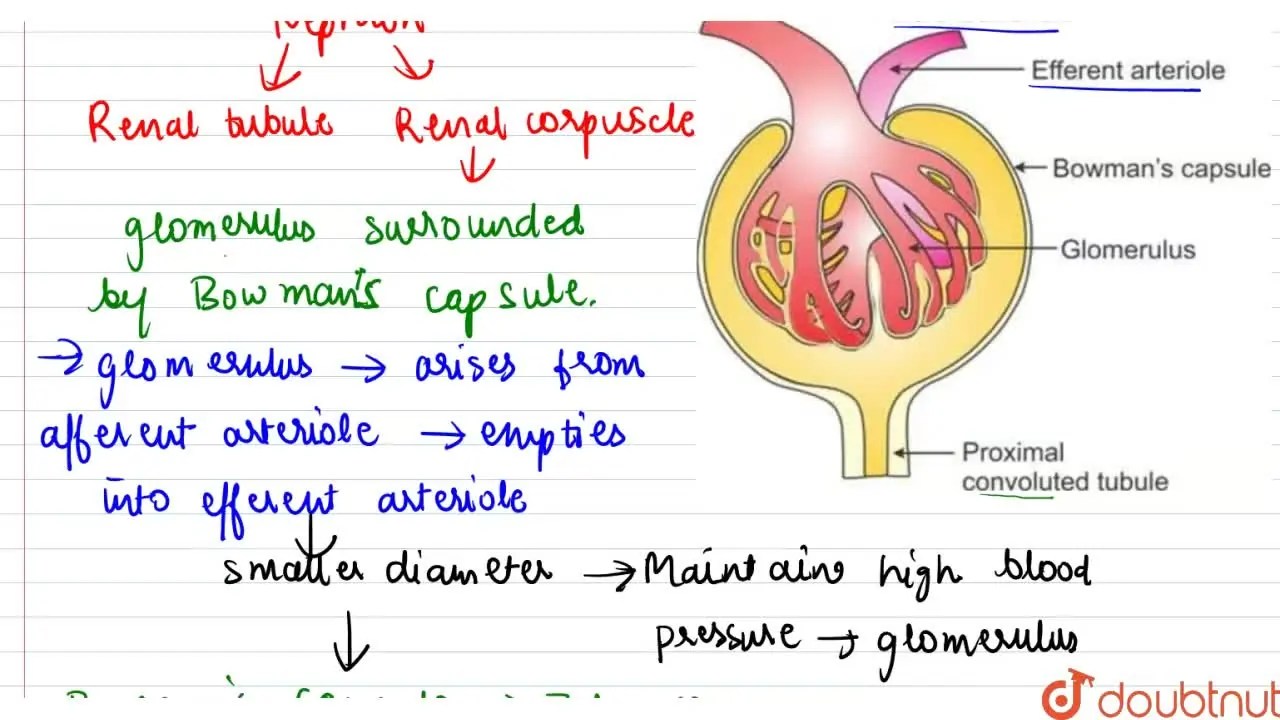 Renal tubule Renal corpuscle
glomerulus surrounded
by Bowman's capsule.
→ glomerulus → arises from
afferent arteriole → empties
into efferent arteriole
smaller diameter → Maintains high blood
pressure → glomerulus
Efferent arteriole
Bowman's capsule
Glomerulus
Proximal
convoluted tubule
doubtnut